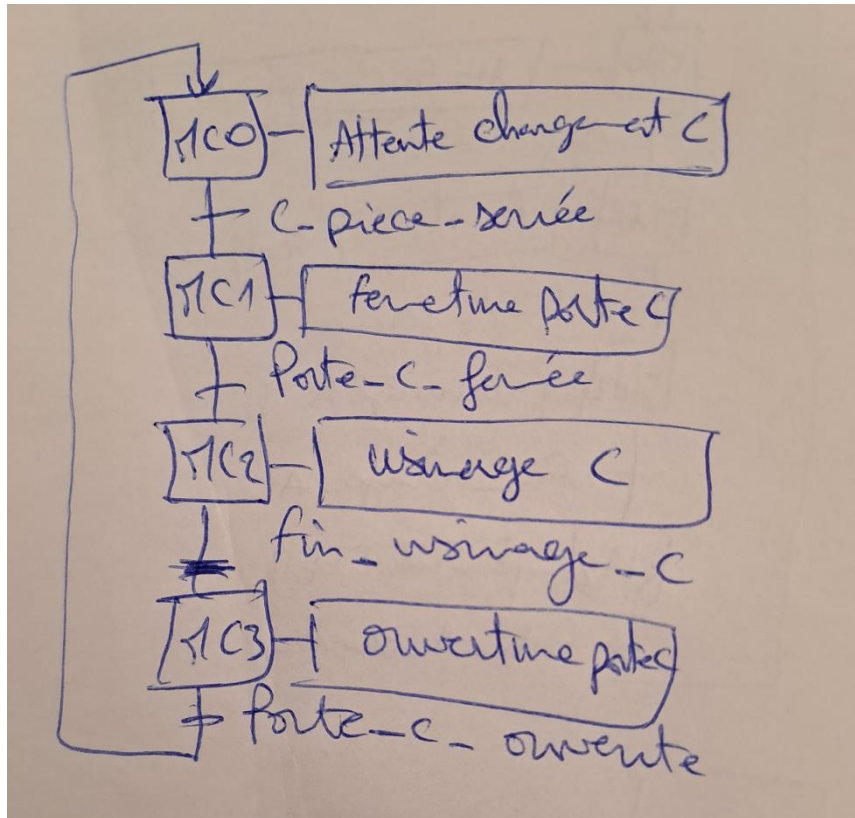 MC0 Attente changement C
C_pièce_serrée
MC1 fermeture porte C
Porte_C_fermée
MC2 usinage C
fin_usinage_C
MC3 ouverture porte C
Porte_C_ouverte